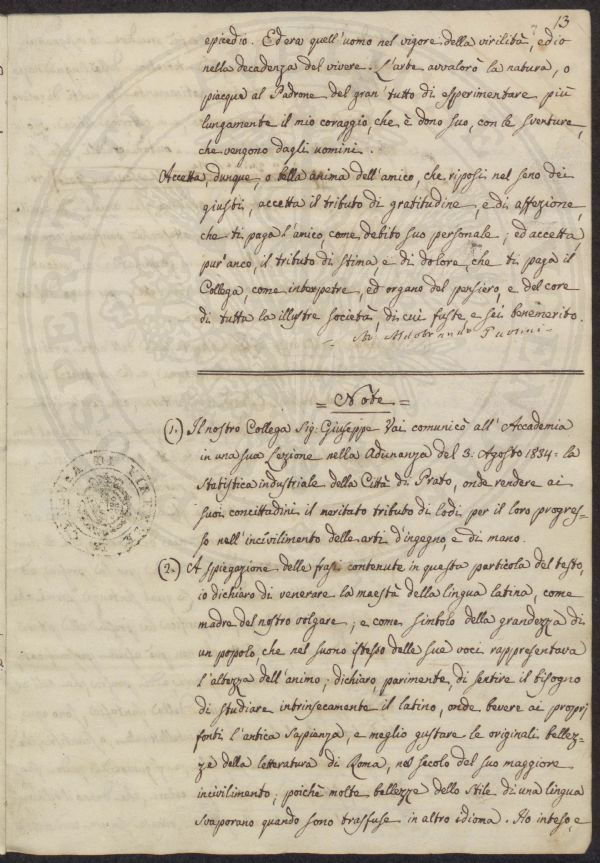 13
epicedio. Ed era quell'uomo nel vigore della virilità, ed io
nella decadenza del vivere. L'arte avvalorò la natura, o
piacque al Padrone del gran' tutto di esperimentare più
lungamente il mio coraggio, che è dono suo, con le sventure,
che vengono dagli uomini.
Accetta, dunque, o bella anima dell'amico, che riposi nel seno dei
giusti, accetta il tributo di gratitudine, e di affezione,
che ti paga l'amico, come debito suo personale; ed accetta,
pur'anco, il tributo di stima, e di dolore, che ti paga il
Collega, come interpetre, ed organo del pensiero, e del core
di tutta la illustre società, di cui fuste e sei benemerito.
Aldobrando Paolini
= Note =
(1.) Il nostro Collega Sig: Giuseppe Vai comunicò all'Accademia
in una sua Lezione nella Adunanza del 3: Agosto 1834 = la
Statistica industriale della Città di Prato, onde rendere ai
suoi concittadini il meritato tributo di lodi per il loro progres=
so nell'incivilimento delle arti d'ingegno, e di mano.
(2.) A spiegazione delle frasi contenute in questa particola del testo,
io dichiaro di venerare la maestà della lingua latina, come
madre del nostro volgare; e come simbolo della grandezza di
un popolo che nel suono istesso delle sue voci rappresentava
l'altezza dell'animo; dichiaro, parimente, di sentire il bisogno
di studiare intrinsecamente il latino, onde bevere ai proprj
fonti l'antica sapienza, e meglio gustare le originali bellez=
ze della letteratura di Roma, nel secolo del suo maggiore
incivilimento; poichè molte bellezze dello stile di una lingua
svaporano quando sono trasfuse in altro idioma. Ho inteso, e